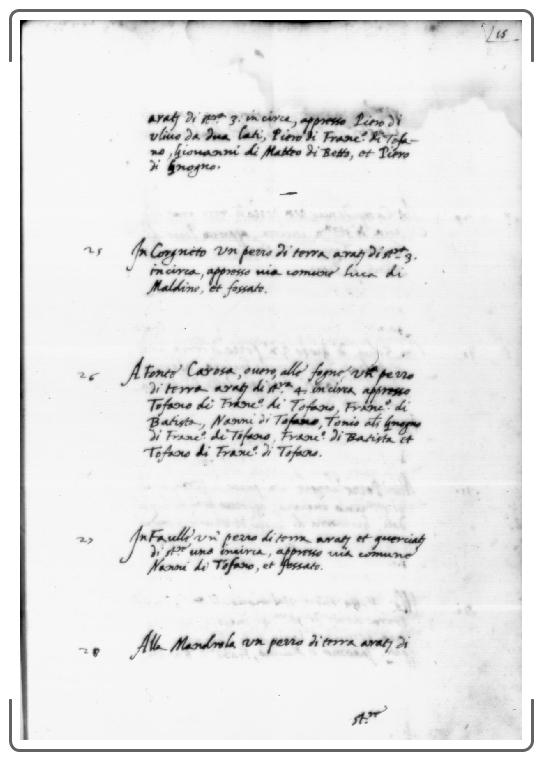 15
arat; di st.re 3. in circa, appresso Piero di
ulivo da dua lati, Piero di Franc.o di Tofa-
no, Giovanni di Matteo di Betto, et Piero
di Gnogno.
25 In Corgneto un pezzo di terra arat; di st.re 3.
in circa, appresso via comune luca di
Maldino, et fossato.
26 A fonte Carosa, overo, alle fogne un pezzo
di terra arat; di st.ra 4. in circa appresso
Tofano di Franc.o di Tofano, Franc.o di
Batista, Nanni di Tofano, Tonio di Gnogno
di Franc.o di Tofano, Franc.o di Batista et
Tofano di Franc.o di Tofano.
27 In Faulle un pezzo di terra arat; et querciat;
di st.ro uno incirca, appresso via comune
Nanni di Tofano, et fossato.
28 Alla Mandrola un pezzo di terra arat; di
st.re